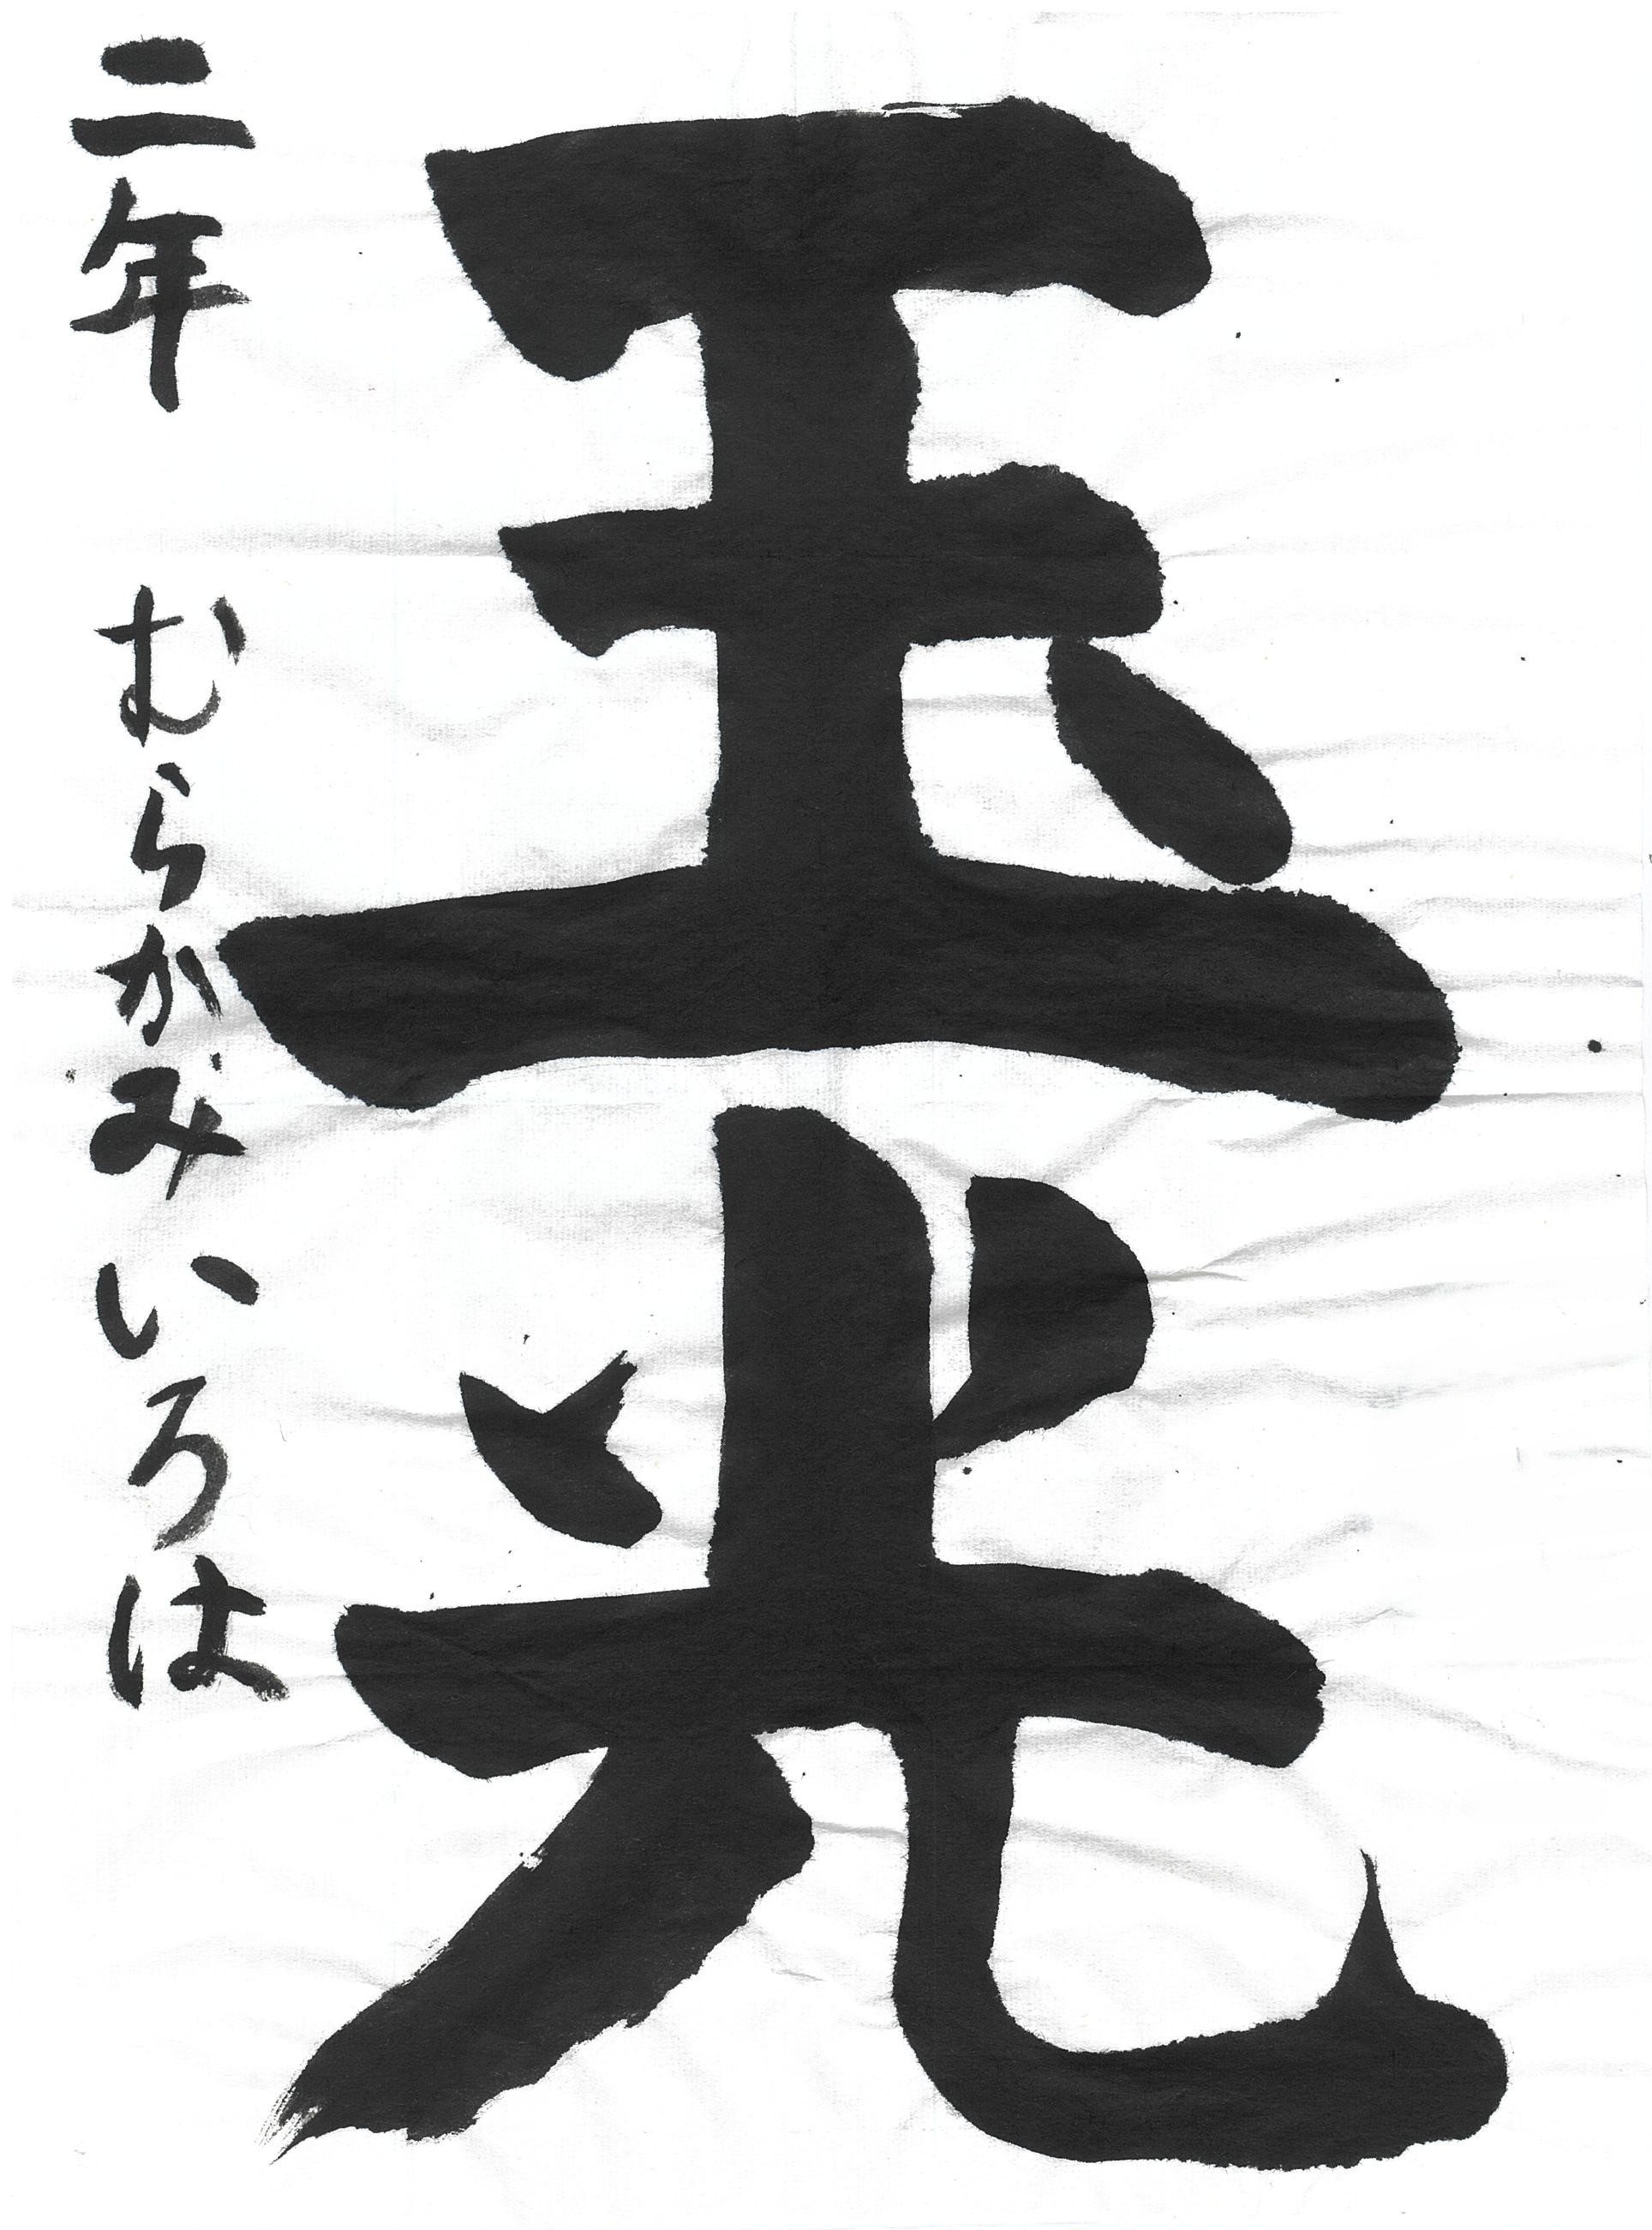 玉光
二年 むらかみいろは